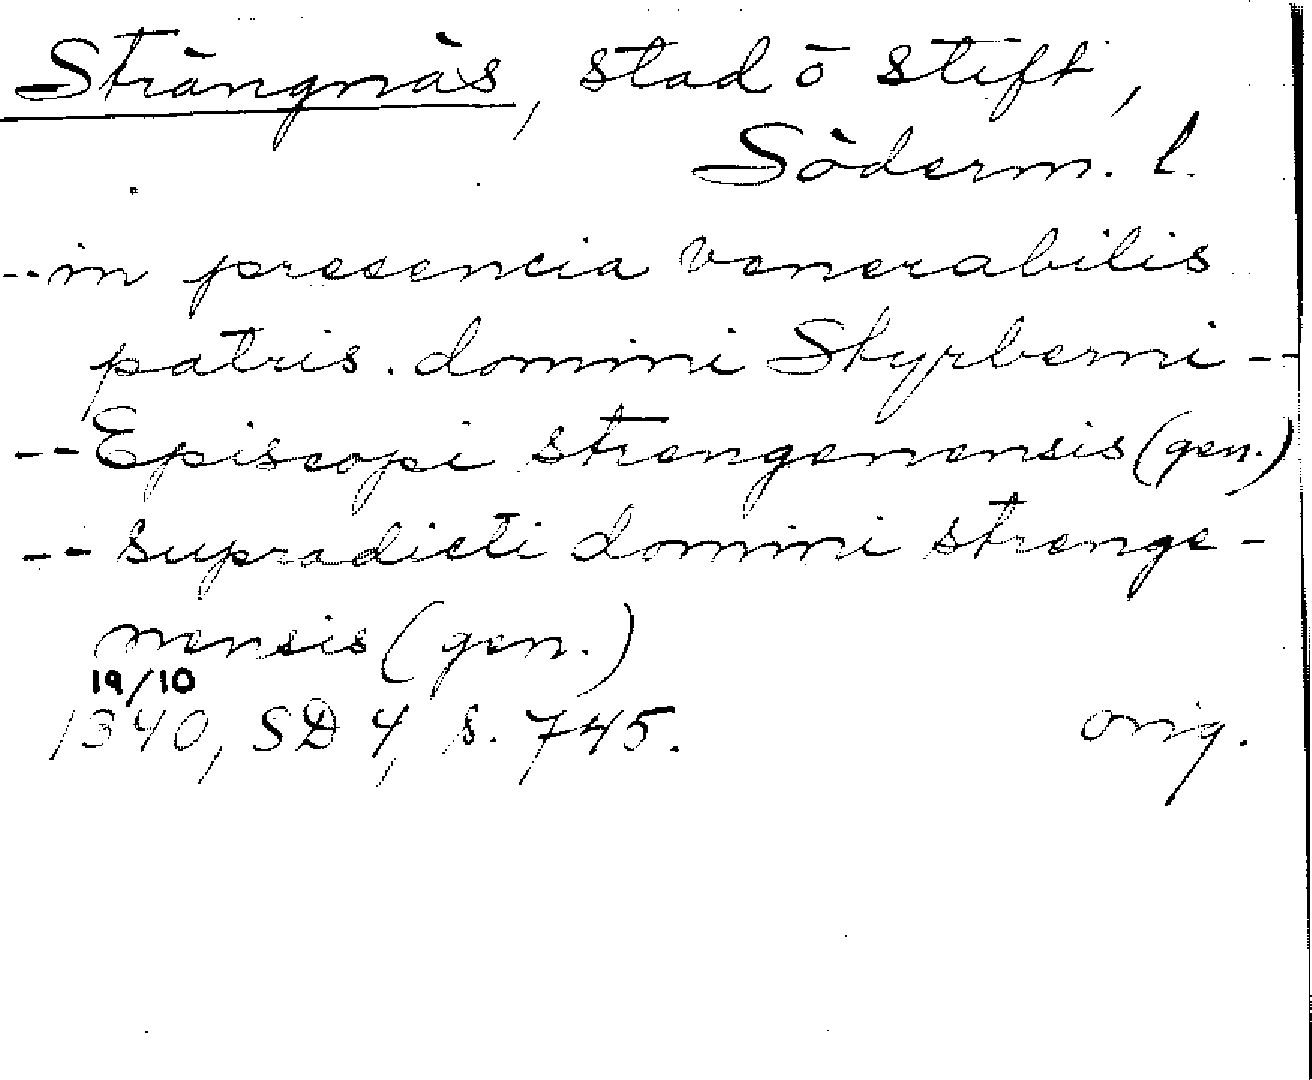 Strängnäs, stad o stift,
Söderm. l.
--in presencia venerabilis
patris. domini Styrberni--
--Episcopi strengenensis (gen.)
--supradicti domini strenge-
nensis (gen.)
19/10
1340, SD 4, s. 745. orig.